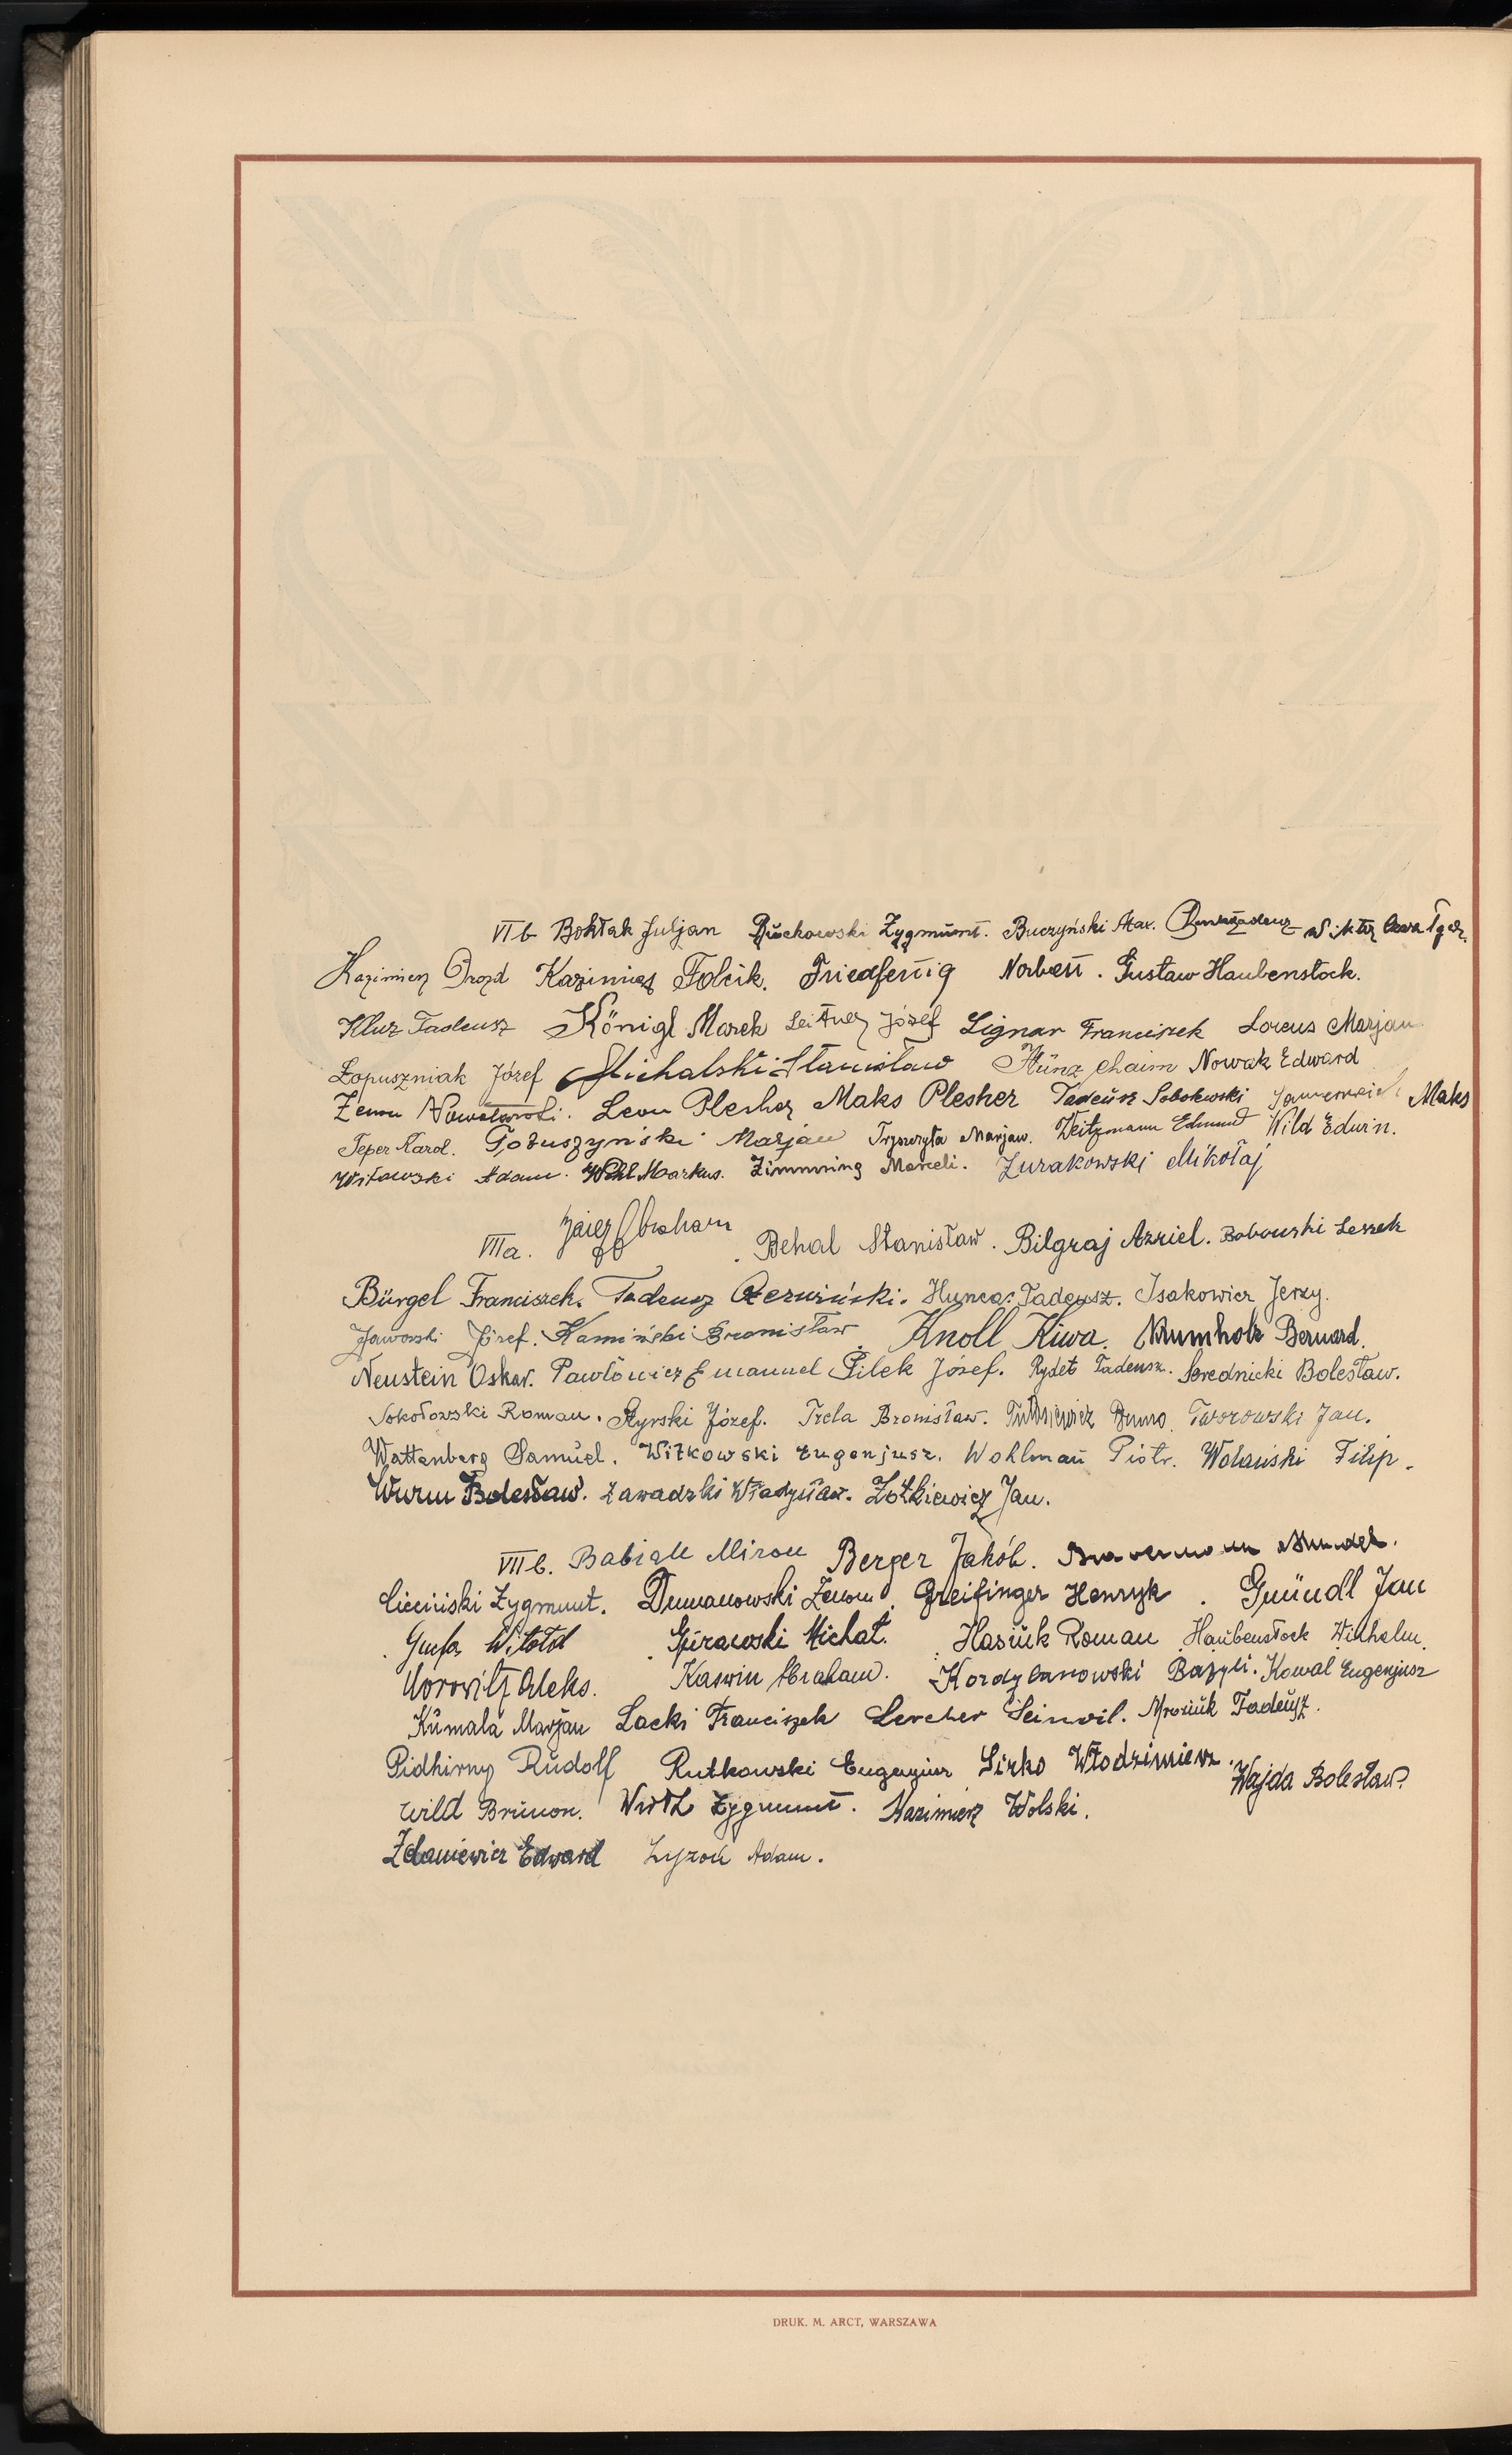 VI b Bohtak Juljan Buchowski Zygmunt. Buczyński Max. Wiktor
Kazimierz Drozd Kazimierz Folcik. Friedfertig Norbert. Gustaw Haubenstock.
Kluz Tadeusz Königl Marek Leitner Józef Lignar Franciszek Lorens Marjan
Łopuszniak Józef Michalski Stanisław Münz Chaim Nowak Edward
Zenon Leon Plesher Maks Plesher Tadeusz Sobolewski Maks
Teper Karol. Tożuszyński Marjan Trzyszyła Marjan. Weitzmann Edmund Wild Edwin.
Witowski Adam. Wohl Markus. Zimmring Marceli. Żurakowski Mikołaj
VII a. Abraham Behal Stanisław. Bilgraj Azriel. Bobowski Leszek
Bürgel Franciszek. Tadeusz Czerwiński. Huncar Tadeusz. Isakowicz Jerzy.
Jaworski Józef. Kamiński Bronisław Knoll Kiwa. Krumholz Bernard.
Neustein Oskar. Pawłowicz Emanuel Pilek Józef. Rydet Tadeusz. Serednicki Bolesław.
Sokołowski Roman. Styrski Józef. Trela Bronisław. Bruno. Tworowski Jan.
Wattenberg Samuel. Witkowski Eugenjusz. Wohlman Piotr. Wolański Filip.
Wurm Bolesław. Zawadzki Władysław. Żółkiewicz Jan.
VII b. Babiak Miron Berger Jakób. Bravermann Mendel.
Cieciński Zygmunt. Dumanowski Zenon. Greifinger Henryk. Gmündl Jan
Witold Górawski Michał. Hasiuk Roman Haubenstock Wilhelm.
Horowitz Aleks. Kaswin Abraham. Kordybanowski Bazyli. Kowal Eugenjusz
Kumala Marjan Lacki Franciszek Lercher Seinwil. Mroniuk Tadeusz.
Pidhirny Rudolf Rutkowski Eugenjusz Sirko Włodzimierz. Wajda Bolesław.
Wild Brunon. Wirth Zygmunt. Kazimierz Wolski.
Zdaniewicz Edward Łyzoń Adam.
DRUK. M. ARCT, WARSZAWA